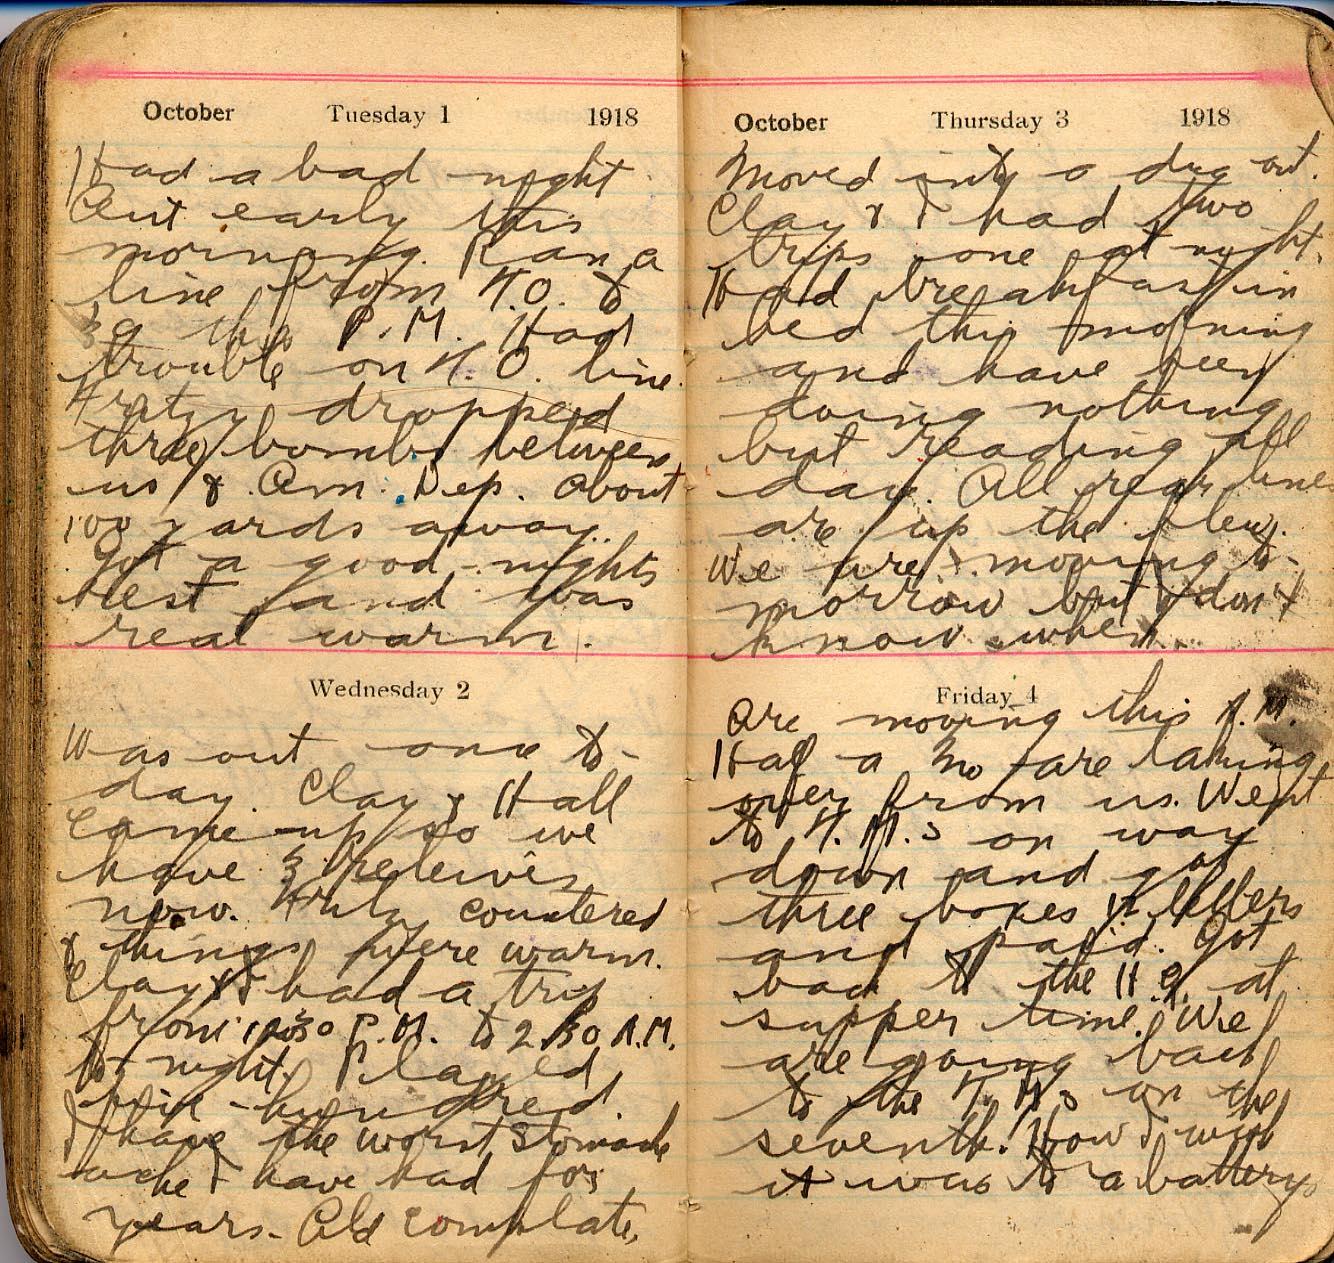 October Tuesday 1 1918
Had a bad night
Out early this
morning. Ran a
line from
the P.M. Had
trouble on line.
Fritzy dropped
three bombs between
us & Am. Dep. About
100 yards away.
Got a good nights
rest and was
real warm.
Wednesday 2
Was out once to-
day. Clay & Hall
came up so we
have
now. countered
& things were warm.
Clay & I had a trip
from 12:30 P.M. to 2.30 A.M.
to-night. Played
five-hundred.
I have the worst stomach
ache I have had for
years.
October Thursday 3 1918
Moved into a dug out.
Clay & I had two
trips one at night.
Had breakfast in
bed this morning
and have been
doing nothing
but reading all
day. All rear line
are up the flewy.
We are moving to-
morrow but I don't
know when.
Friday 4
Are moving this A.M.
Half a Mo are taking
over from us. Went
to on way
down and got
three boxes 12 letters
and paid. Got
back to the H.Q. at
supper time. We
are going back
to the on the
seventh. How I wish
it was to a battery